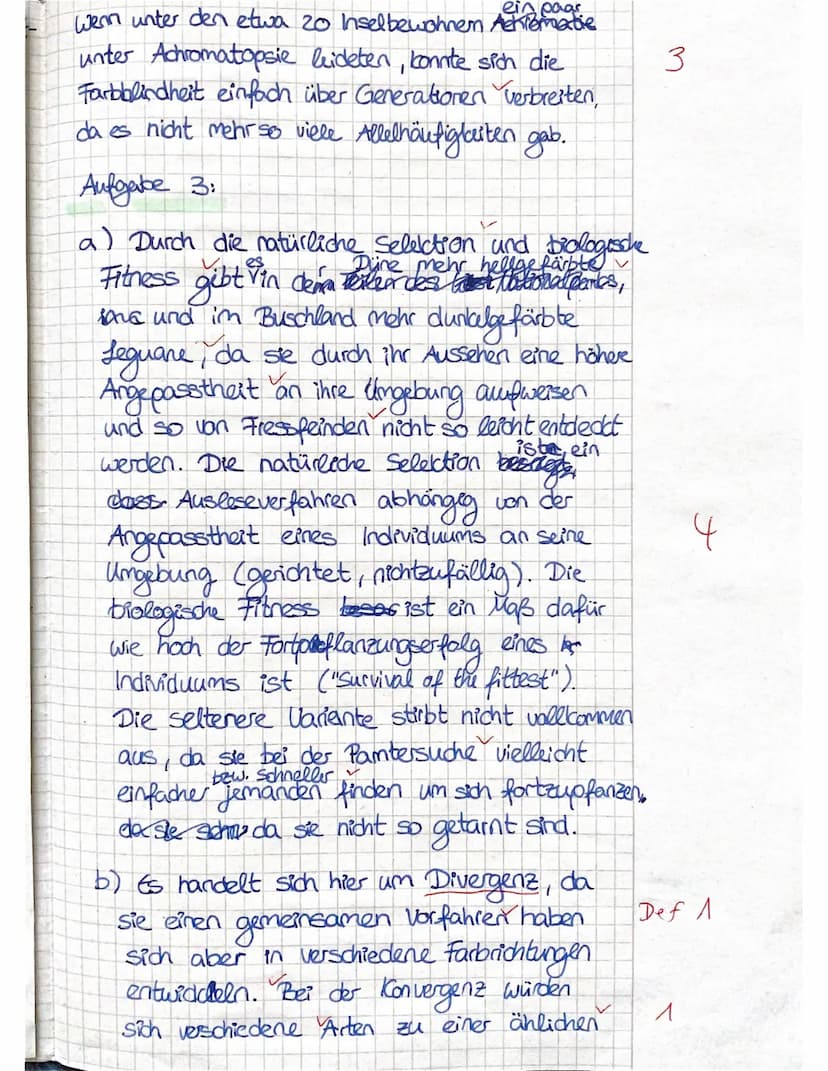 ein paar
Wenn unter den etwa 20 Inselbewohnern
unter Achromatopsie leideten, konnte sich die
3
Farbblindheit einfach über Generationen verbreiten,
da es nicht mehr so viele Allelhäufigkeiten gab.
Aufgabe 3:
a) Durch die natürliche Selektion und biologische
Fitness gibt es in der Düne mehr hellgefärbte
und im Buschland mehr dunkelgefärbte
Leguane, da sie durch ihr Aussehen eine höhere
Angepasstheit an ihre Umgebung aufweisen
und so von Fressfeinden nicht so leicht entdeckt
werden. Die natürliche Selektion ist ein
Ausleseverfahren abhängig von der
Angepasstheit eines Individuums an seine
4
Umgebung (gerichtet, nichtzufällig). Die
biologische Fitness ist ein Maß dafür
wie hoch der Fortpflanzungserfolg eines
Individuums ist ("Survival of the fittest").
Die seltenere Variante stirbt nicht vollkommen
aus, da sie bei der Parntersuche vielleicht
einfacher bzw. schneller jemanden finden um sich fortzupfanzen,
da sie nicht so getarnt sind.
b) Es handelt sich hier um Divergenz, da
sie einen gemeinsamen Vorfahren haben
Def 1
sich aber in verschiedene Farbrichtungen
entwickeln. Bei der Konvergenz würden
sich verschiedene Arten zu einer ählichen
1